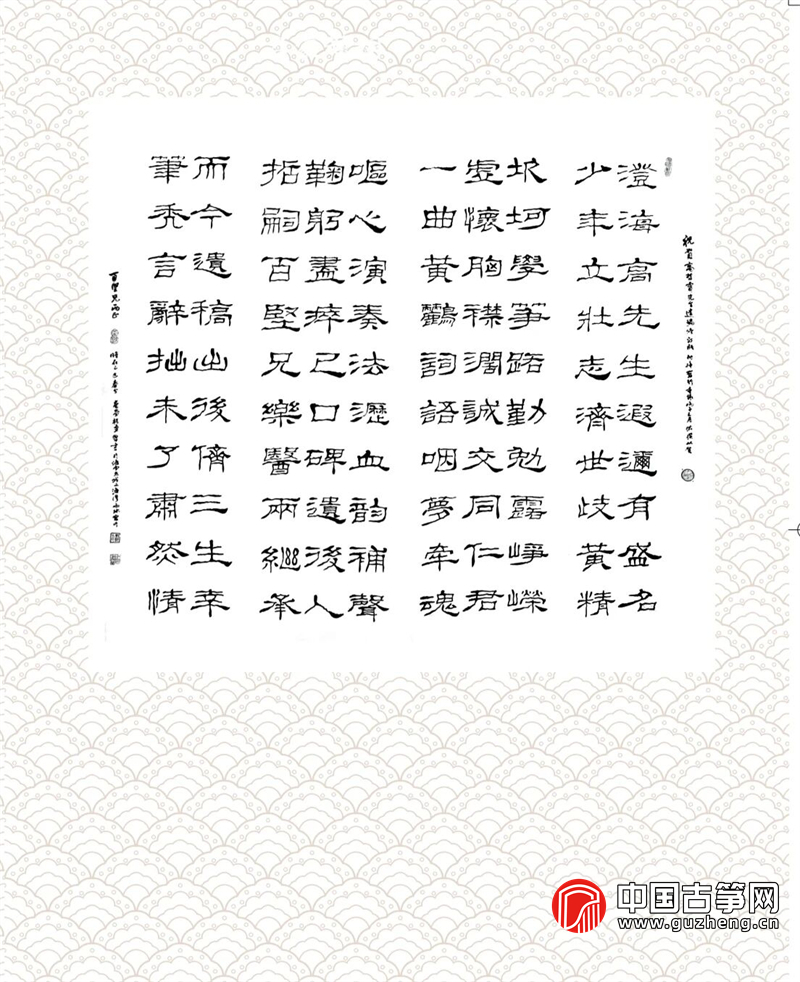 澄海高先生遐邇有盛名
少年立壯志濟世歧黃精
坎坷學箏路勤勉露崢嶸
虛懷胸襟濶誠交同仁君
一曲黃鸝詞語咽夢牽魂
嘔心演奏法瀝血韵補聲
鞠躬盡瘁已口碑遺後人
哲嗣百堅兄樂醫兩繼承
而今遺稿出後儕三生幸
筆禿言辭拙未了肅然情
百堅兄雨正
中国古筝网
www.guzheng.cn